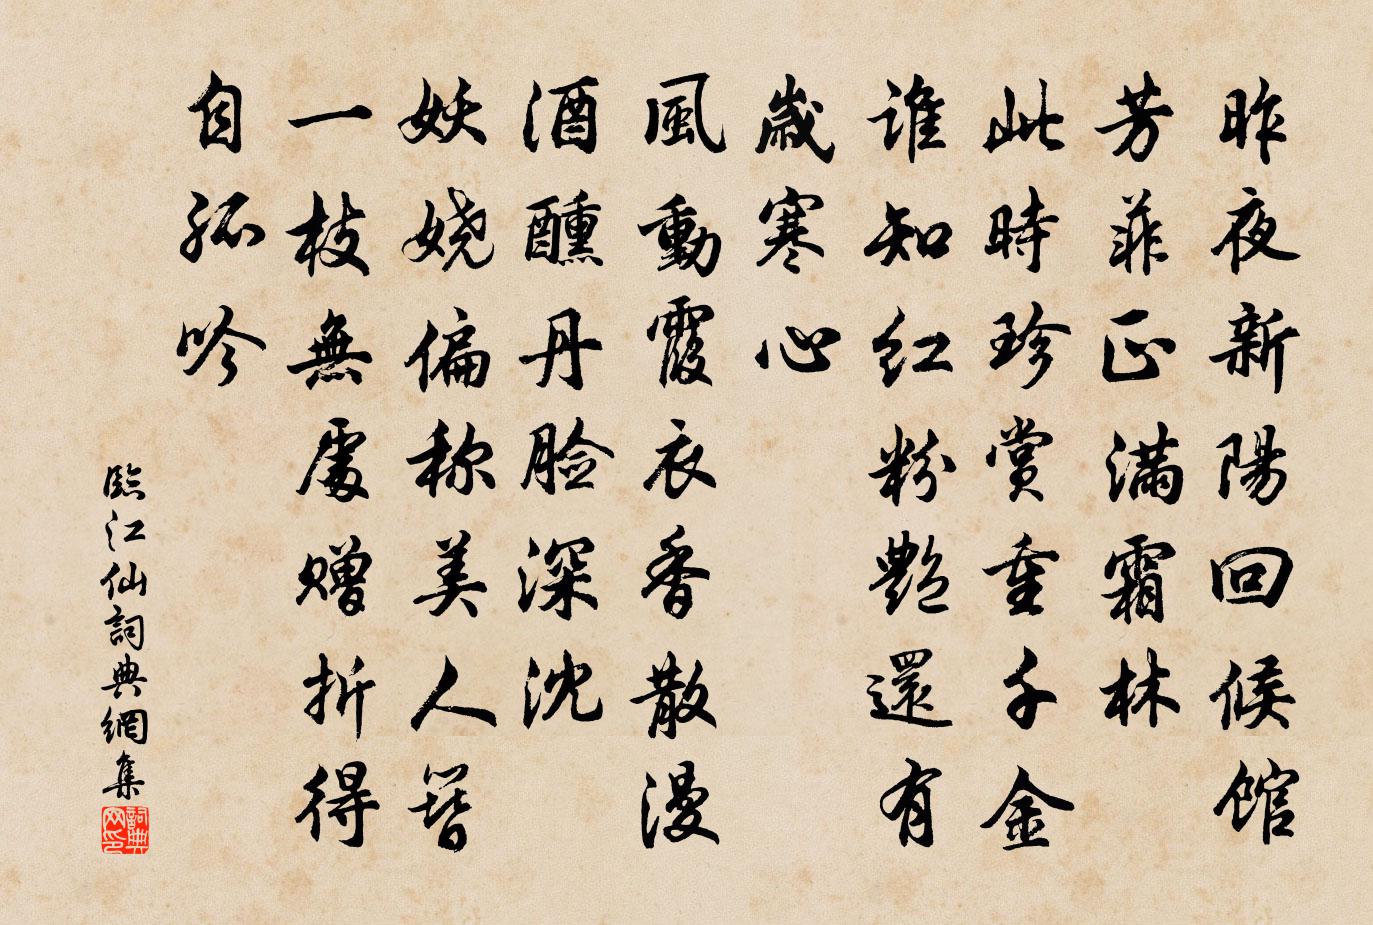 昨夜新陽回候館
芳菲正満霜林
此時珍賞重千金
谁知红粉艷還有
歲寒心
風動霞衣香散漫
酒醺丹脸深沈
妖娆偏称美人簪
一枝無處赠折得
自孤吟
臨江仙詞典網集
詞典网印